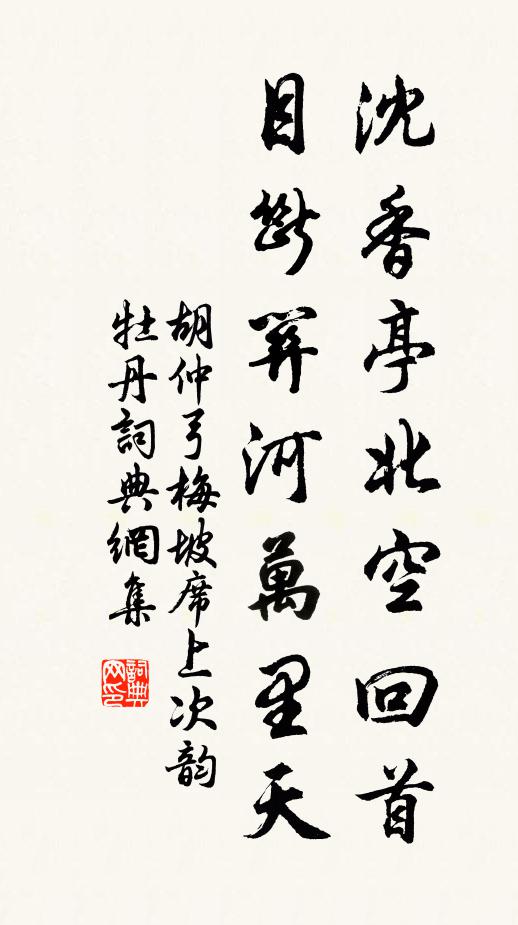 沈香亭北空回首
目斷關河萬里天
胡仲弓梅坡席上次韵
牡丹詞典網集
詞典網印